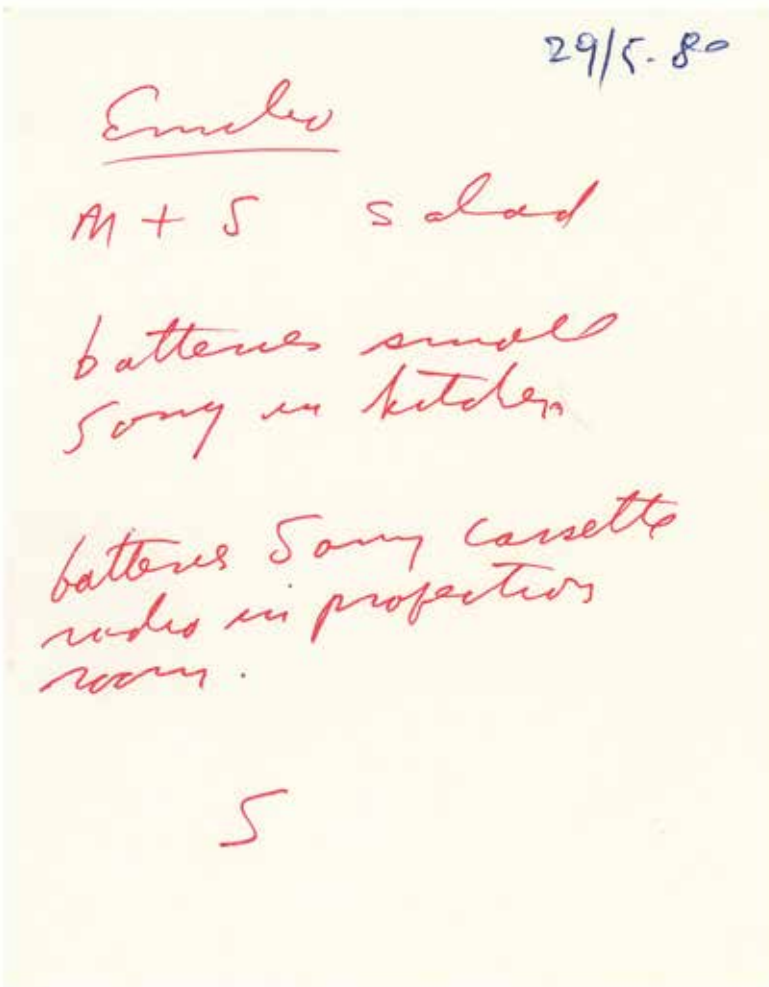 29/5.80
Emilio
M + S salad
batteries small
Sony in kitchen
batteries Sony cassette
radio in projection
room.
S